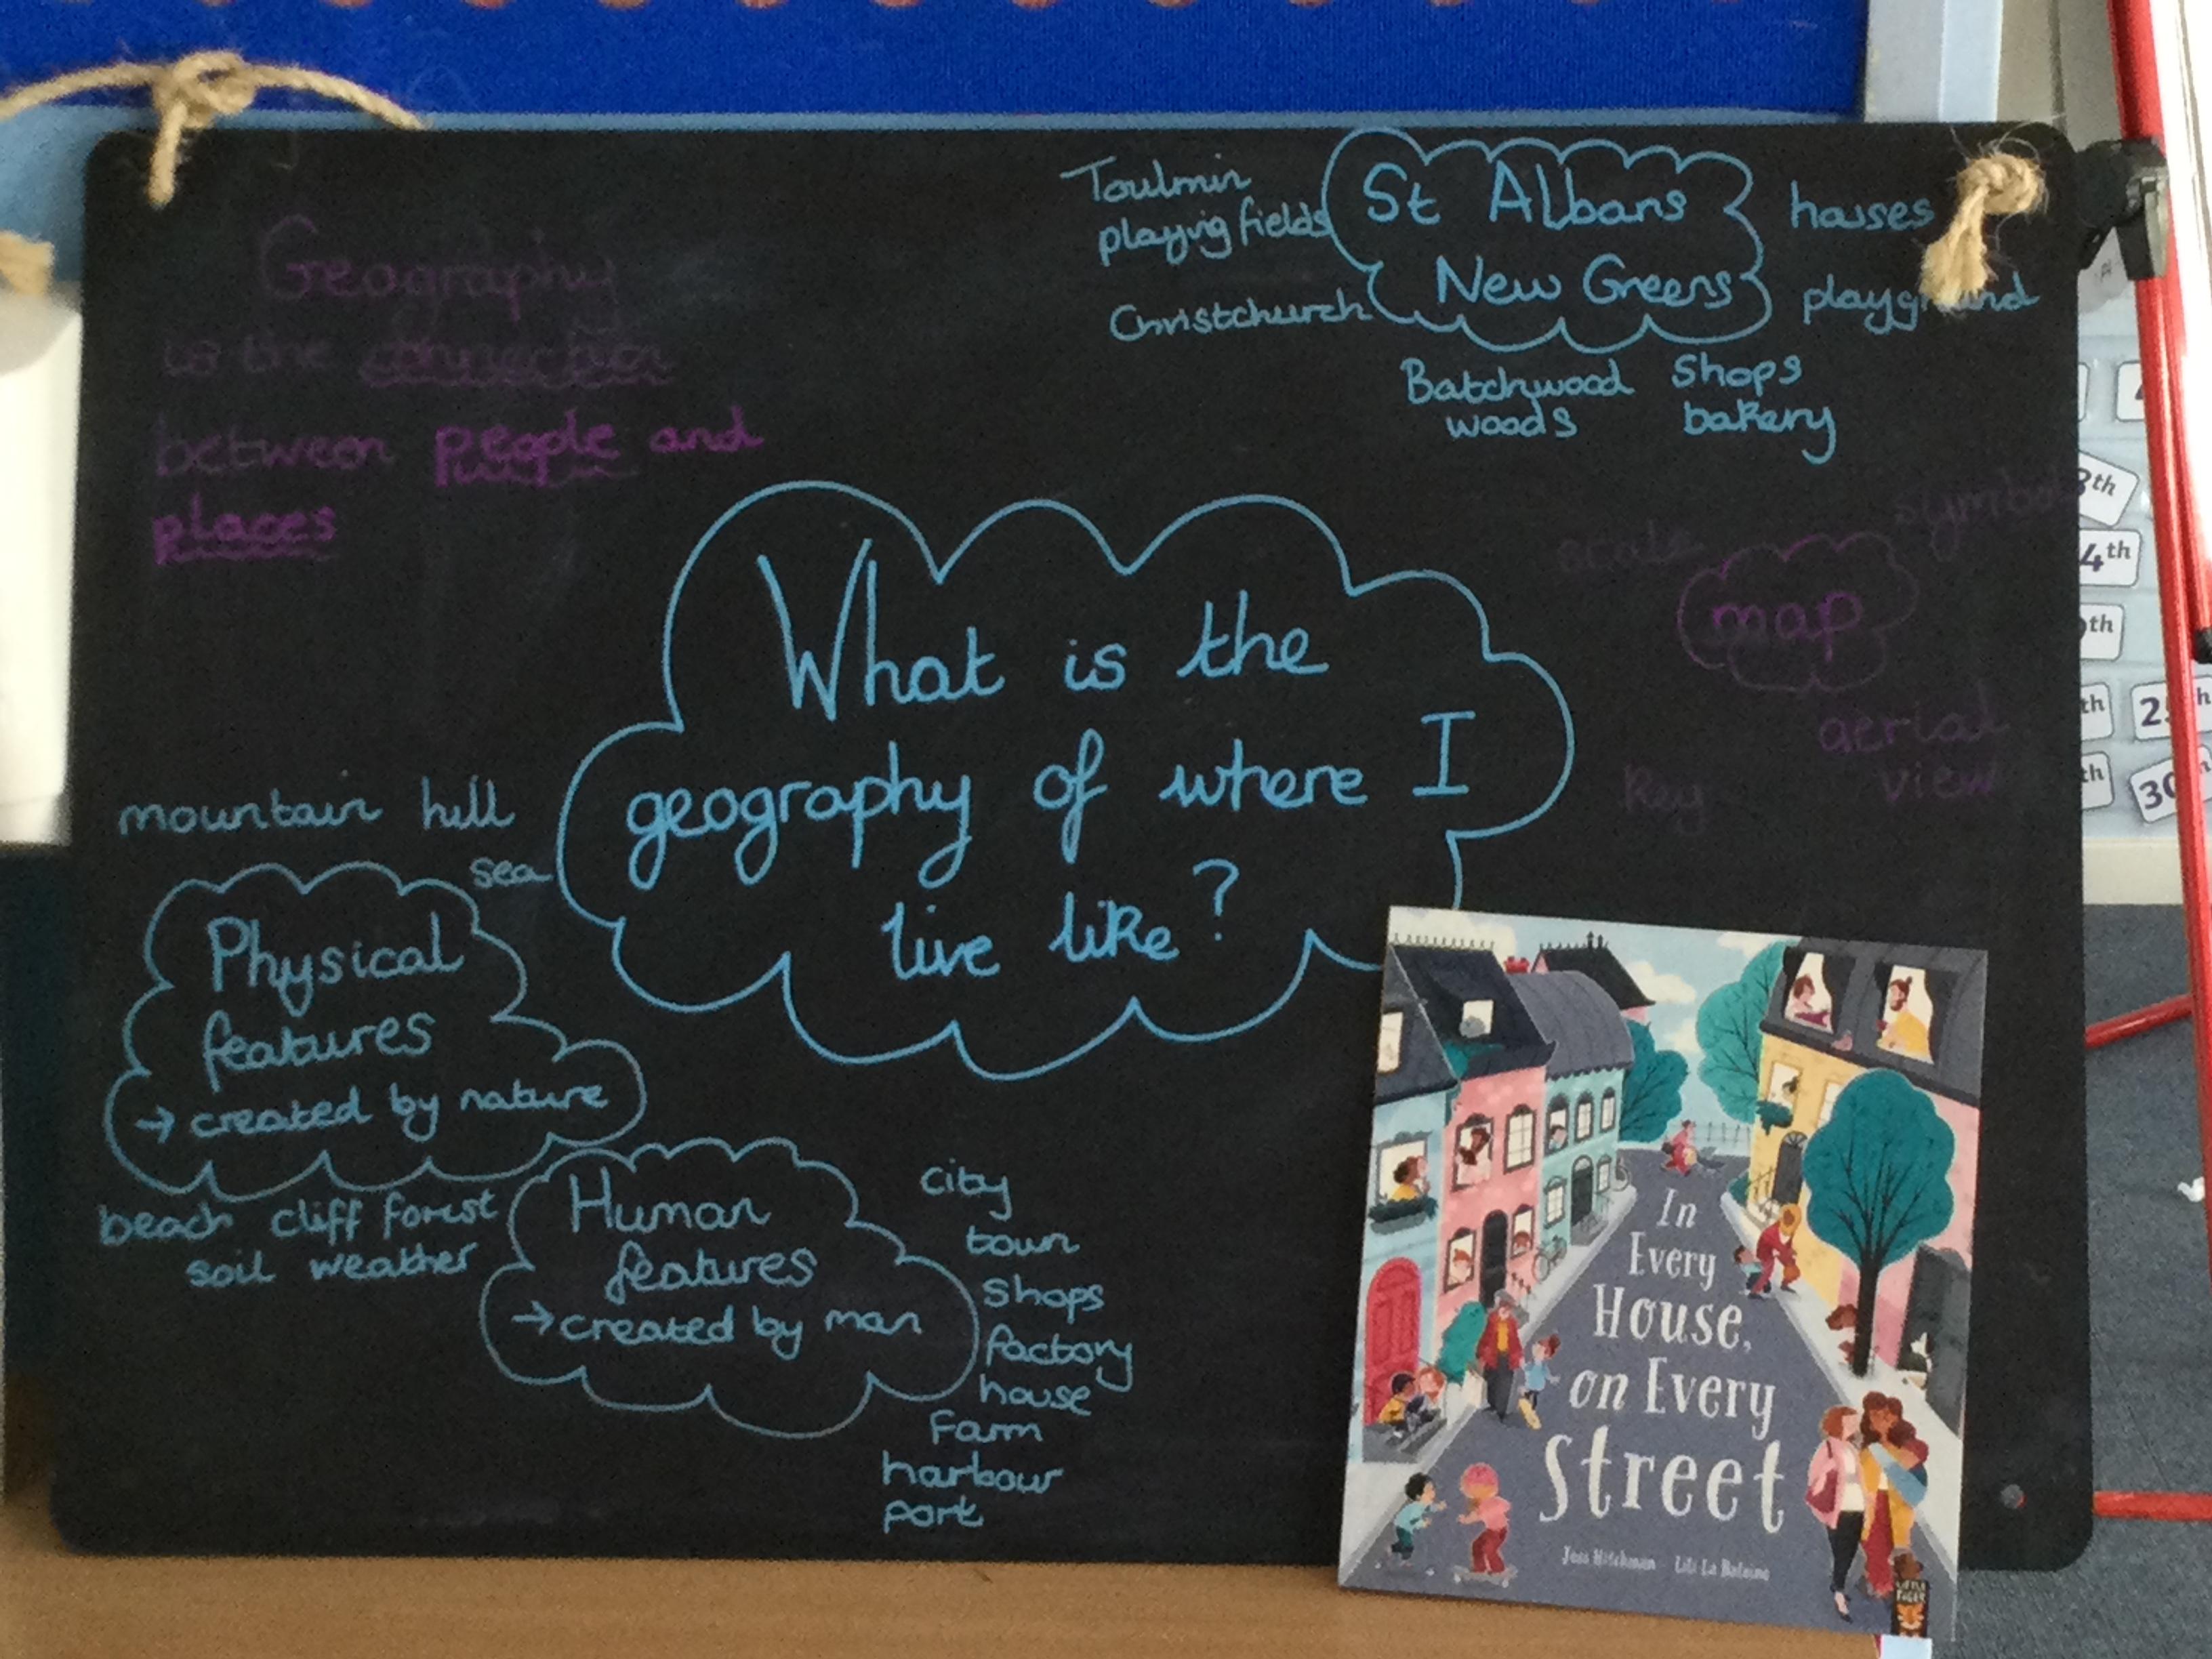 Geography
is the connection
between people and
places
Toulmin
playing fields
Christchurch
St Albans
New Greens
houses
Batchwood
woods
Shops
bakery
scale
symbol
map
aerial
view
key
What is the
geography of where I
live like?
mountain hill
sea
Physical
features
→ created by nature
beach cliff forest
soil weather
Human
features
→ created by man
city
town
shops
factory
house
Farm
harbour
port
In
Every
House,
on Every
Street
Jess Hitchman Lili La Baleine
LITTLE
TIGER
4th
th
th
th